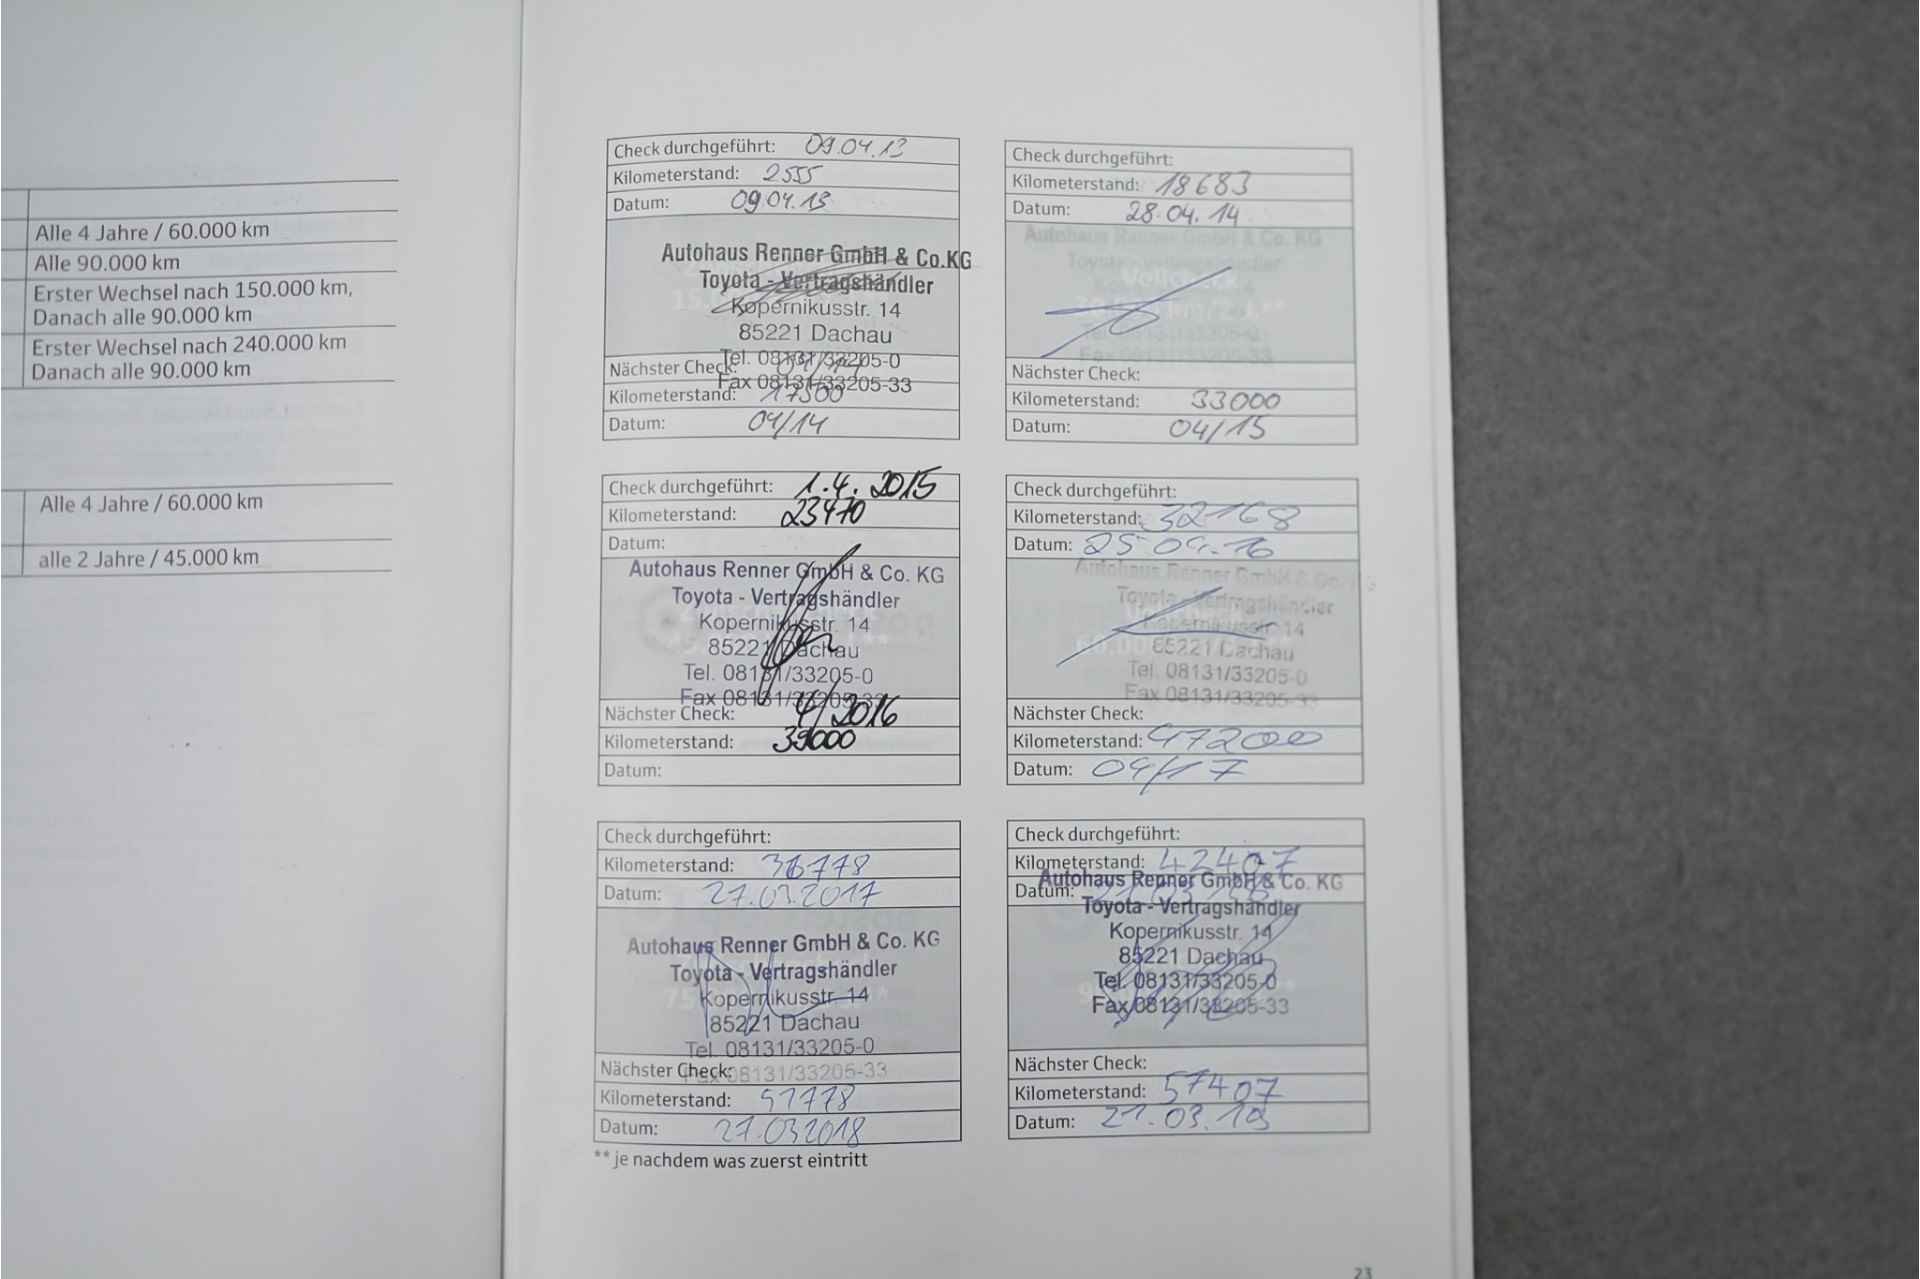 Alle 4 Jahre / 60.000 km
Alle 90.000 km
Erster Wechsel nach 150.000 km,
Danach alle 90.000 km
Erster Wechsel nach 240.000 km
Danach alle 90.000 km
Alle 4 Jahre / 60.000 km
alle 2 Jahre / 45.000 km
Check durchgeführt: 09.04.13
Kilometerstand: 2555
Datum: 09.04.13
Autohaus Renner GmbH & Co.KG
Toyota - Vertragshändler
Kopernikusstr. 14
85221 Dachau
Tel. 08131/33205-0
Nächster Check:
Fax 08131/33205-33
Kilometerstand: 17500
Datum: 04/14
Check durchgeführt:
Kilometerstand: 18683
Datum: 28.04.14
Autohaus Renner GmbH & Co. KG
Vollcheck
Nächster Check:
Kilometerstand: 33000
Datum: 04/15
Check durchgeführt: 1.4. 2015
Kilometerstand: 23470
Datum:
Autohaus Renner GmbH & Co. KG
Toyota - Vertragshändler
Kopernikusstr. 14
85221 Dachau
Tel. 08131/33205-0
Fax 08131/33205-33
Nächster Check: 4/2016
Kilometerstand: 39000
Datum:
Check durchgeführt:
Kilometerstand: 32168
Datum: 25 04.16
Autohaus Renner GmbH & Co. KG
Toyota - Vertragshändler
Kopernikusstr. 14
85221 Dachau
Tel. 08131/33205-0
Fax 08131/33205-33
Nächster Check:
Kilometerstand: 47200
Datum: 04/17
Check durchgeführt:
Kilometerstand: 36778
Datum: 27.03.2017
Autohaus Renner GmbH & Co. KG
Toyota - Vertragshändler
Kopernikusstr. 14
85221 Dachau
Tel. 08131/33205-0
Nächster Check:
Fax 08131/33205-33
Kilometerstand: 51778
Datum: 27.03.2018
Check durchgeführt:
Kilometerstand: 42407
Autohaus Renner GmbH & Co. KG
Datum:
Toyota - Vertragshändler
Kopernikusstr. 14
85221 Dachau
Tel. 08131/33205-0
Fax 08131/33205-33
Nächster Check:
Kilometerstand: 57407
Datum: 21.03.19
** je nachdem was zuerst eintritt
23